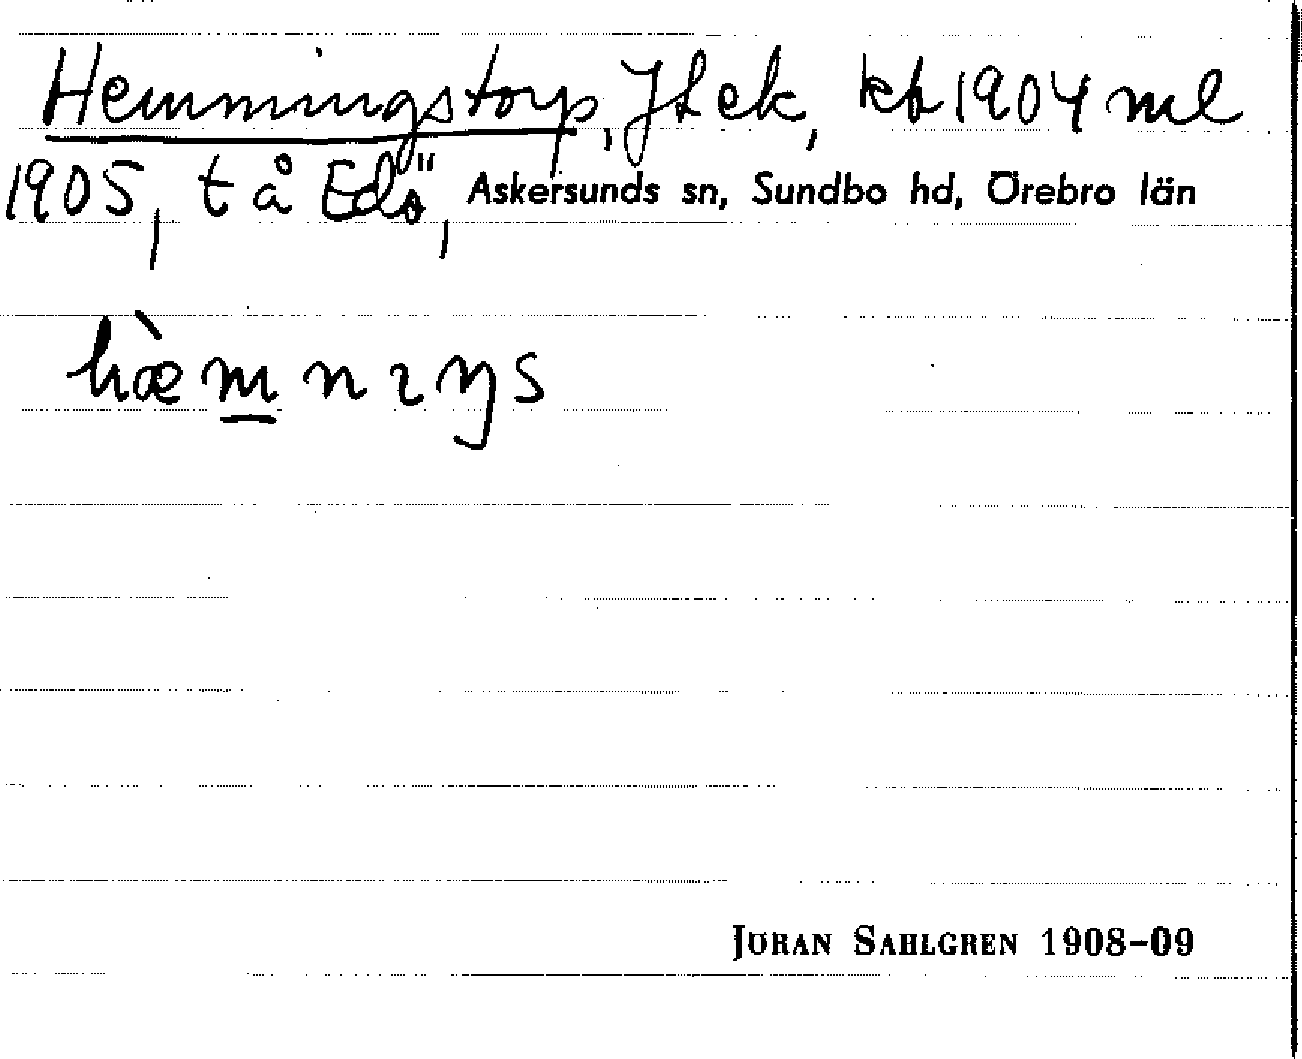 Hemmingstorp, JL ek, kb 1904 ml
1905, t å Edö", Askersunds sn, Sundbo hd, Örebro län
hæ̀m̲nɩŋs
JÖRAN SAHLGREN 1908–09